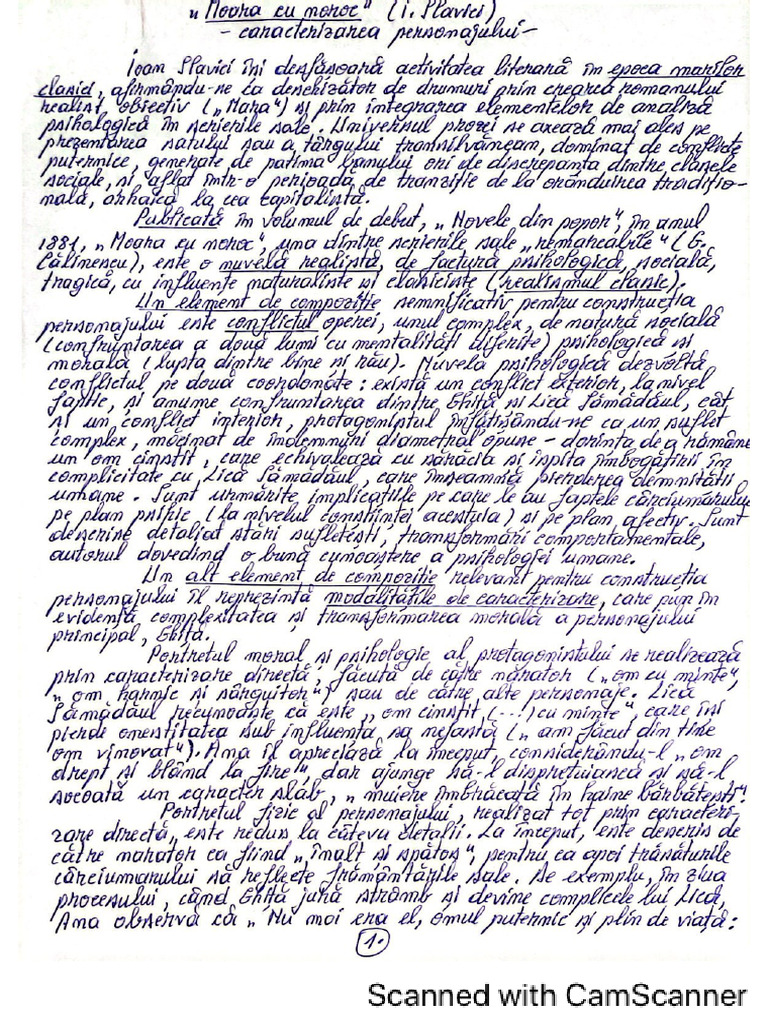 „Moara cu noroc" (I. Slavici)
- caracterizarea personajului -
Ioan Slavici își desfășoară activitatea literară în epoca marilor
clasici, afirmându-ne ca deschizător de drumuri prin crearea romanului
realist, obiectiv („Mara") și prin integrarea elementelor de analiză
psihologică în scrierile sale. Universul prozei se axează mai ales pe
prezentarea satului sau a târgului transilvănean, dominat de conflicte
puternice, generate de patima banului ori de discrepanța dintre clasele
sociale, și aflat într-o perioadă de tranziție de la orânduirea tradițio-
nală, arhaică la cea capitalistă.
Publicată în volumul de debut, „Novele din popor", în anul
1881, „Moara cu noroc", una dintre scrierile sale „remarcabile" (G.
Călinescu), este o nuvelă realistă, de factură psihologică, socială,
tragică, cu influențe naturaliste și clasiciste (realismul clasic).
Un element de compoziție semnificativ pentru construcția
personajului este conflictul operei, unul complex, de natură socială
(confruntarea a două lumi cu mentalități diferite) psihologică și
morală (lupta dintre bine și rău). Nuvela psihologică dezvoltă
conflictul pe două coordonate: există un conflict exterior, la nivel
faptic, și anume confruntarea dintre Ghiță și Lică Sămădăul, cât
și un conflict interior, protagonistul înfățișându-ne ca un suflet
complex, măcinat de îndemnuri diametral opuse - dorința de a rămâne
un om cinstit, care echivalează cu sărăcia și ispita îmbogățirii în
complicitate cu Lică Sămădăul, care înseamnă pierderea demnității
umane. Sunt urmărite implicațiile pe care le au faptele cârciumarului
pe plan psihic (la nivelul conștiinței acestuia) și pe plan afectiv. Sunt
descrise detaliat stări sufletești, transformări comportamentale,
autorul dovedind o bună cunoaștere a psihologiei umane.
Un alt element de compoziție relevant pentru construcția
personajului îl reprezintă modalitățile de caracterizare, care pun în
evidență complexitatea și transformarea morală a personajului
principal, Ghiță.
Portretul moral și psihologic al protagonistului se realizează
prin caracterizare directă, făcută de către narator („om cu minte",
„om harnic și sârguitor") sau de către alte personaje. Lică
Sămădăul recunoaște că este „om cinstit, (...) cu minte", care își
pierde onestitatea sub influența sa nefastă („am făcut din tine
om vinovat"). Ana îl apreciază la început, considerându-l „om
drept și blând la fire", dar ajunge să-l disprețuiască și să-l
socoată un caracter slab, „muiere îmbrăcată în haine bărbătești".
Portretul fizic al personajului, realizat tot prin caracteri-
zare directă, este redus la câteva detalii. La început, este descris de
către narator ca fiind „înalt și spătos", pentru ca apoi trăsăturile
cârciumarului să reflecte frământările sale. De exemplu, în ziua
procesului, când Ghiță jură strâmb și devine complicele lui Lică,
Ana observă că „Nu mai era el, omul puternic și plin de viață:
1.
Scanned with CamScanner